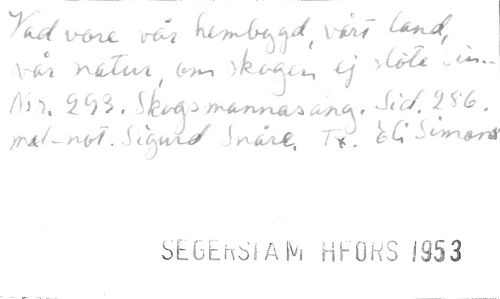 Vad vore vår hembygd, vårt land,
vår natur, om skogen ej slöte sin...
Nr. 293. Skogsmannasång. Sid. 286.
mel-not. Sigurd Snåre. Tx. Eli Simons
SEGERSTAM HFORS 1953